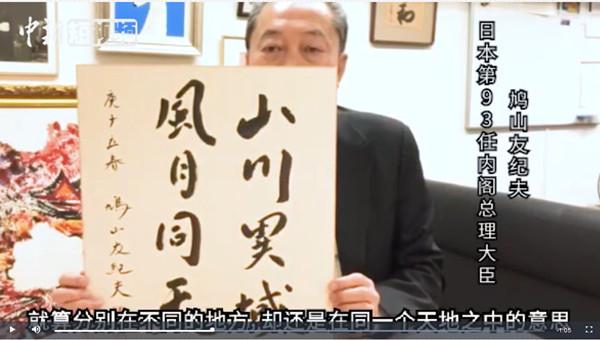 中新短视频
和
鸠山友纪夫
日本第93任内阁总理大臣
山川異域
風月同天
庚子立春 鳩山友紀夫
就算分别在不同的地方,却还是在同一个天地之中的意思
-1:05